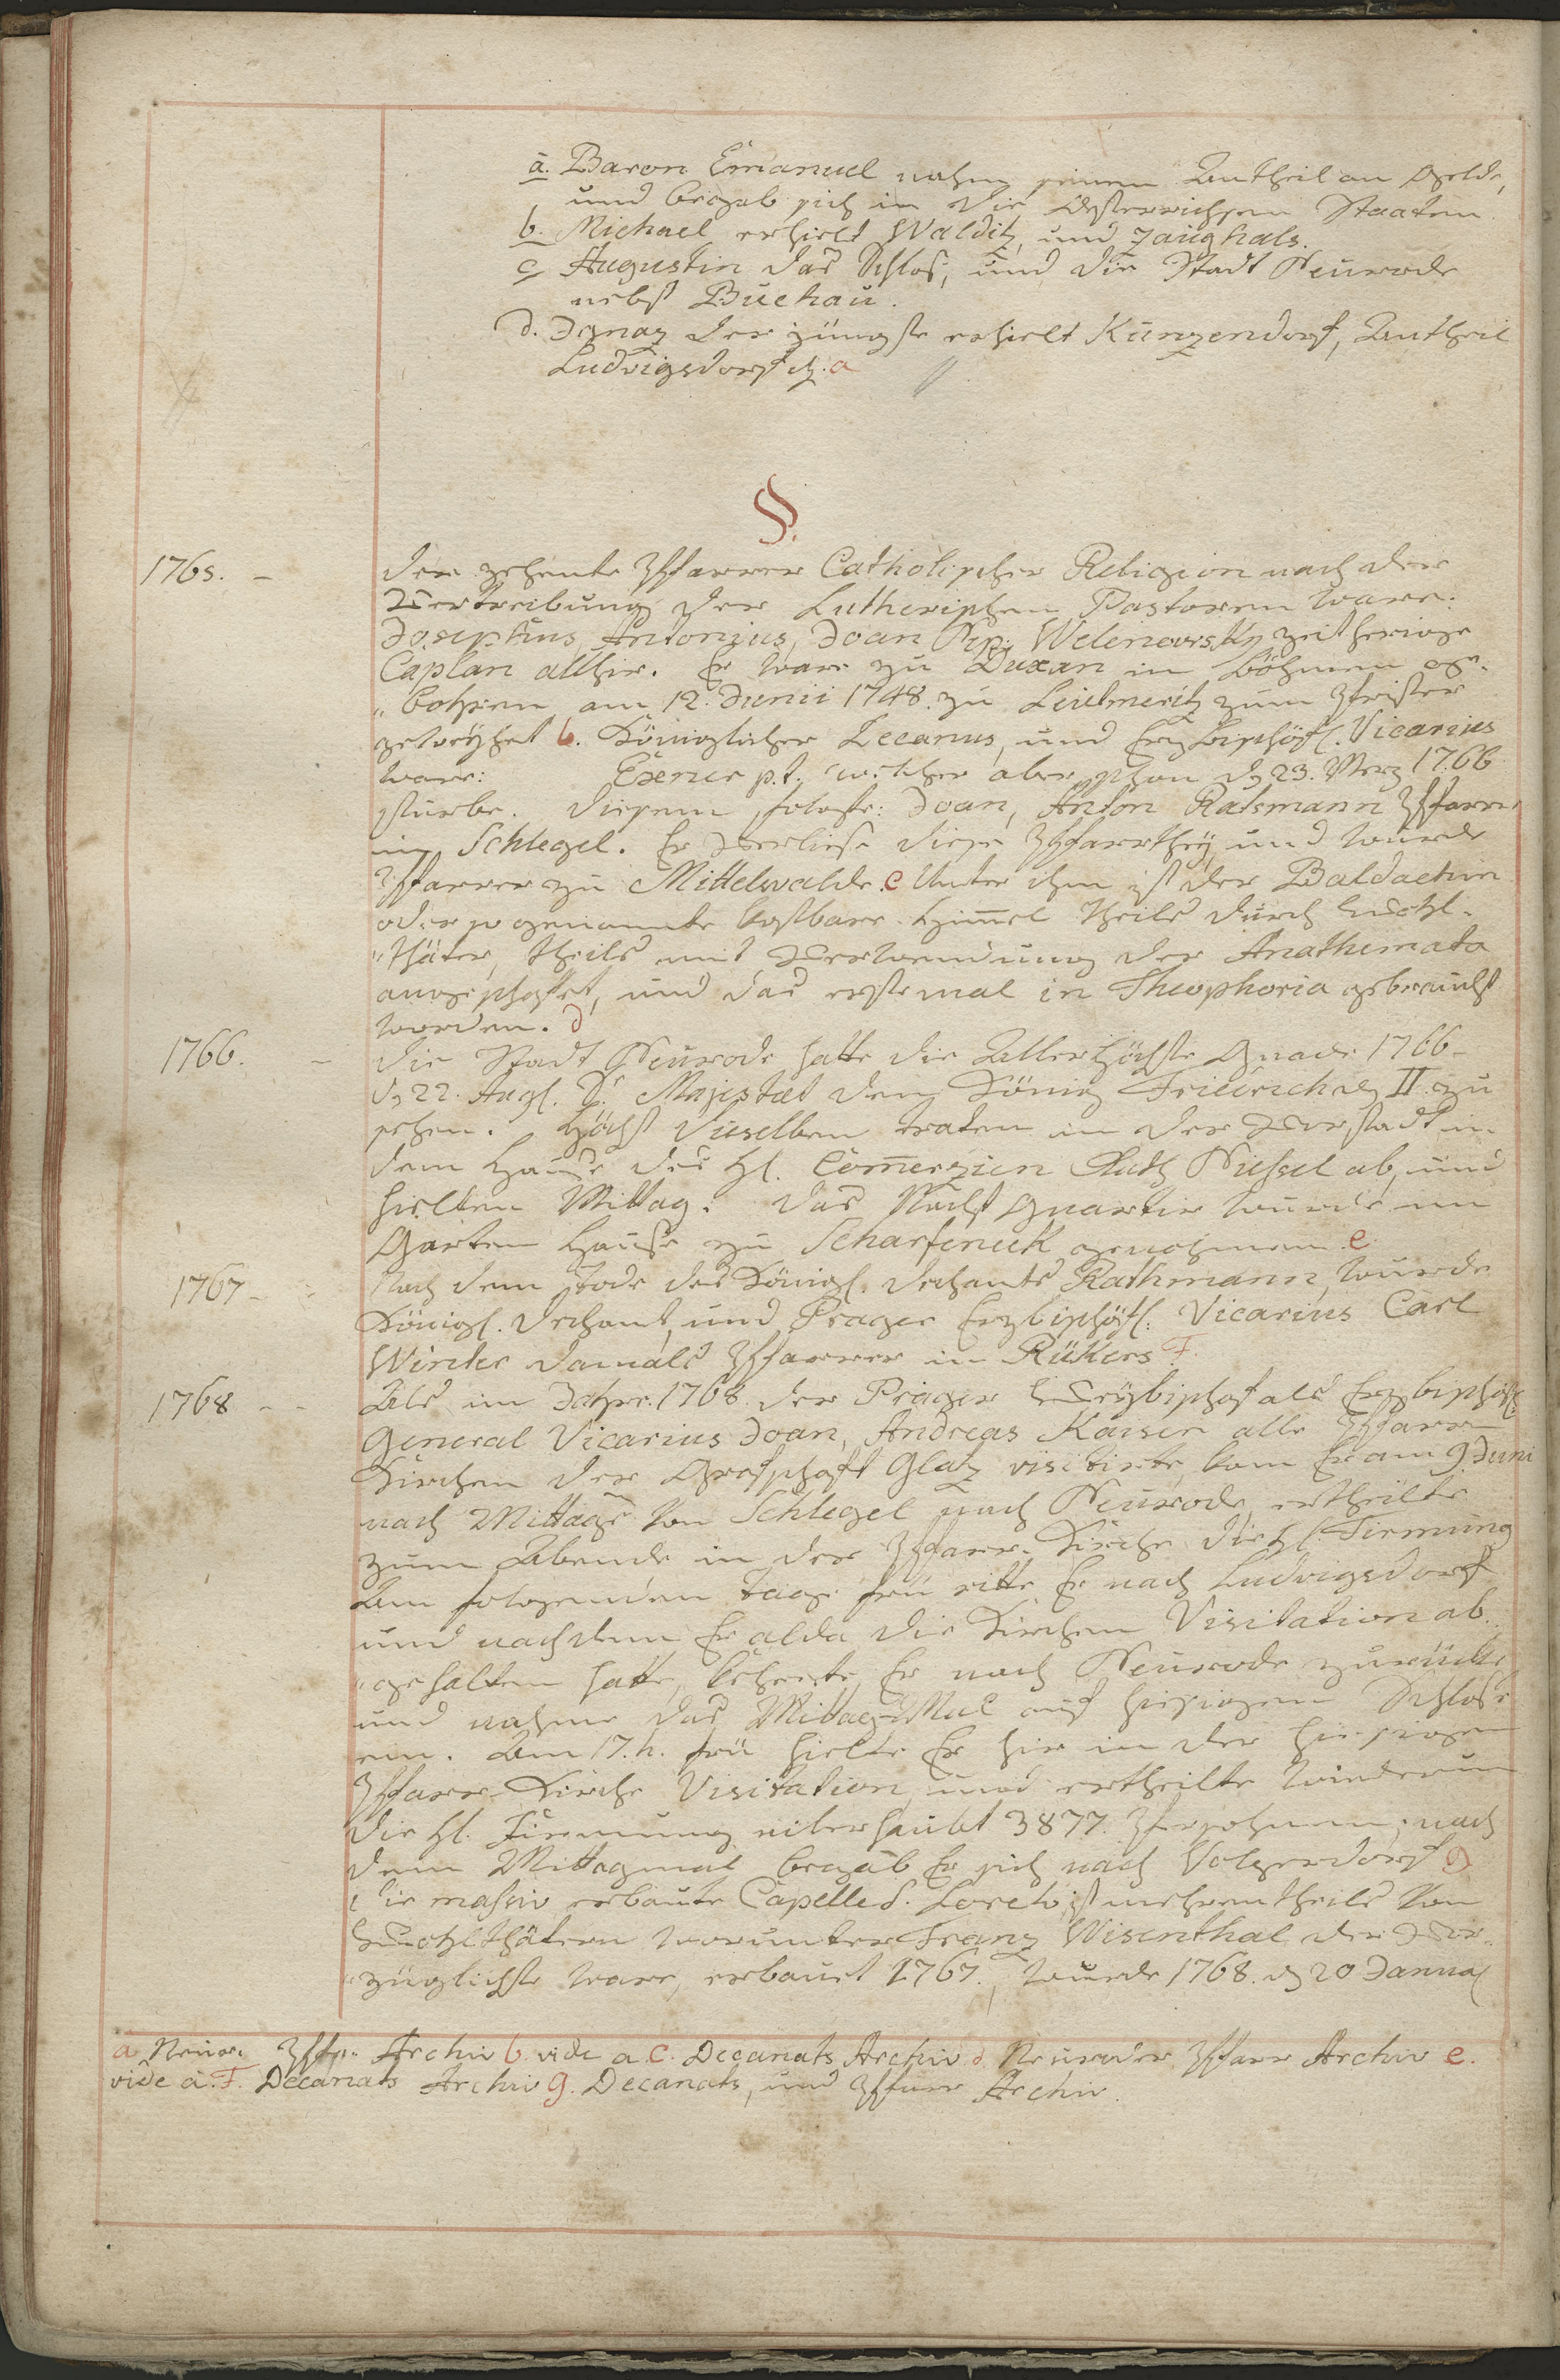 a. Baron Emanuel nahm seinen Antheil an Gelde,
und begab sich in die Östereichsen Staaten
b. Michael erhielt Walditz, und Zaughals.
c. Augustin das Schlos, und die Stadt Neurode
nebst Buchau.
d. Ignaz der jüngste erhielt Kunzendorf, Antheil
Ludwigsdorf etz. a
§.
1765. – Der zehente Pfarrer Catholischer Religion nach der
Vertreibung der Lutherischen Pastoren ware:
Josephus, Antonius, Joan Nep. Welinowsky zeitheriger
Caplan allhir. Er ware zu Duxan in Böhmen ge-
„bohren am 12. Junii 1748. zu Leutmeritz zum Prister
geweyhet b. Königlicher Decanus, und Erzbischöfl. Vicarius
ware: Exner p.t. welcher aber schon d 23. Merz 1766
sturbe. Diesem folgte: Joan, Anton Ratsmann Pfarrer
in Schlegel. Er verliese diese Pfarrthey, und wurde
Pfarrer zu Mittelwalde. c Unter ihm ist der Baldachin
oder so genannte kostbare Himmel theils durch Wohl-
„thäter, theils mit Verwendung der Anathemata
angeschaft, und das erstemal in Theophoria gebraucht
worden. d
1766. – Die Stadt Neurode hatte die Allerhöchste Gnade 1766
d 22. Augl. Sr. Majestät den König Friedrich den II. zu
sehen. Höchst Dieselben traten in der Vorstadt in
dem Hause des H. Comerzien Rath Niessel ab, und
hielten Mittag. Das Nacht Quartir wurde im
Garten Hause zu Scharfeneck genohmen. e
1767 – Nach dem Tode des Königl. Dechants Rathmann, wurde
Königl. Dechant, und Prager Erzbischöfl. Vicarius Carl
Winter damals Pfarrer in Rükers F.
1768 – Als im Jahre 1768. der Prager Weyhbischof als Erzbischöfl.
General Vicarius Joan, Andreas Kaiser alle Pfarr
Kirchen der Grafschaft Glatz visitirte, kam Er am 9 Juni
nach Mittage von Schlegel nach Neurode, ertheilte
zum Abende in der Pfarr-Kirche die hl. Firmung
Am folgenden Tage frü ritte Er nach Ludwigsdorf
und nachdem Er alda die Kirchen Visitation ab-
„gehalten hatte, kehrte Er nach Neurode zurücke
und nahme das Mittag-Mal auf hiesigem Schlosse
ein. Am 17. h. frü hielte Er hir in der hiesigen
Pfarr-Kirche Visitation, und ertheilte wiederum
die hl. Firmung überhaubt 3877. Persohnen, nach
dem Mittagmal begab Er sich nach Volperdorf g
Die massiv erbaute Capelle d. Loreto, ist mehrentheils von
Wohlthätern worunter Franz Wisenthal der vor-
„züglichste ware, erbauet 1767., wurde 1768. d 20 Janua
a Neur. Pfar. Archiv b. vide a. c. Decanats Archiv d. Neuroder Pfarr Archiv e.
vide a. F. Decanats Archiv g. Decanats, und Pfarr Archiv.